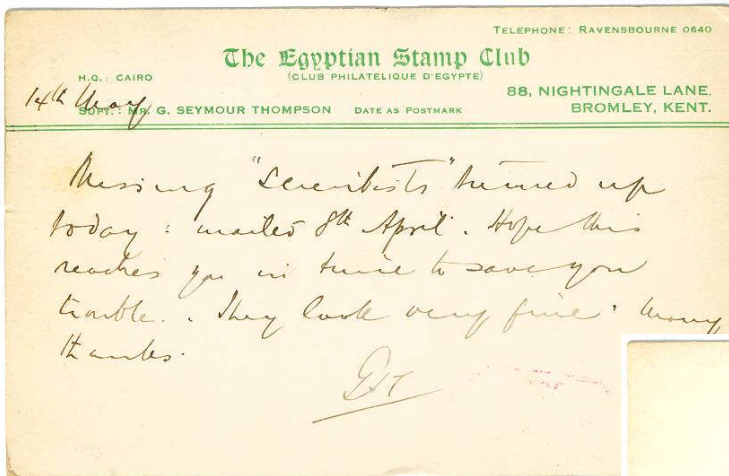 TELEPHONE: RAVENSBOURNE 0640
The Egyptian Stamp Club
(CLUB PHILATELIQUE D'EGYPTE)
H.Q.: CAIRO
88, NIGHTINGALE LANE,
14th May
SUPT.: MR. G. SEYMOUR THOMPSON DATE AS POSTMARK BROMLEY, KENT.
Missing "Scientists" turned up
today: mailed 8th April. Hope this
reaches you in time to save you
trouble. They look very fine. Many
thanks.
GST